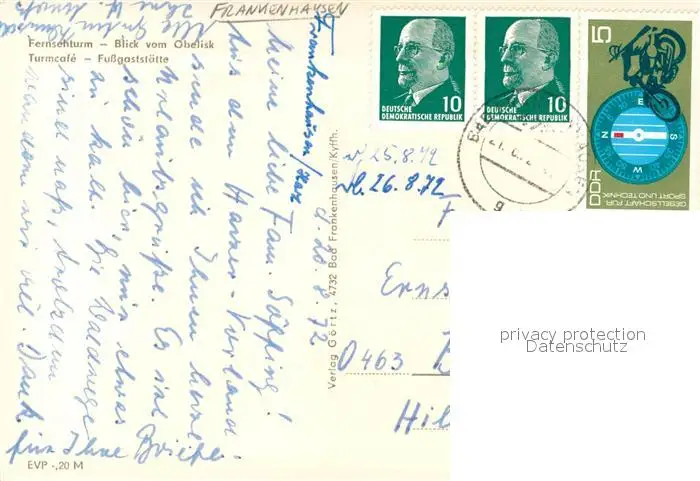 FRANKENHAUSEN
Fernsehturm – Blick vom Obelisk
Turmcafé – Fußgaststätte
Frankenhausen/Harz
d. 20.8.72
Meine liebe Fam. Söffing!
Aus dem Harzer-Vorland
sende ich Ihnen herzl.
Urlaubsgrüße. Es ist
schön hier, nur etwas
zu kalt. Die Waldwege
sind naß, trotzdem
wandern wir viel. Dank
für Ihre Briefe.
Alle
EVP -,20 M
Verlag Görtz, 4732 Bad Frankenhausen/Kyffh.
25.8.72
26.8.72
Erns
0463
Hil
10
DEUTSCHE
DEMOKRATISCHE REPUBLIK
10
DEUTSCHE
DEMOKRATISCHE REPUBLIK
5
N
E
S
W
DDR
GESELLSCHAFT FÜR
SPORT UND TECHNIK
privacy protection
Datenschutz